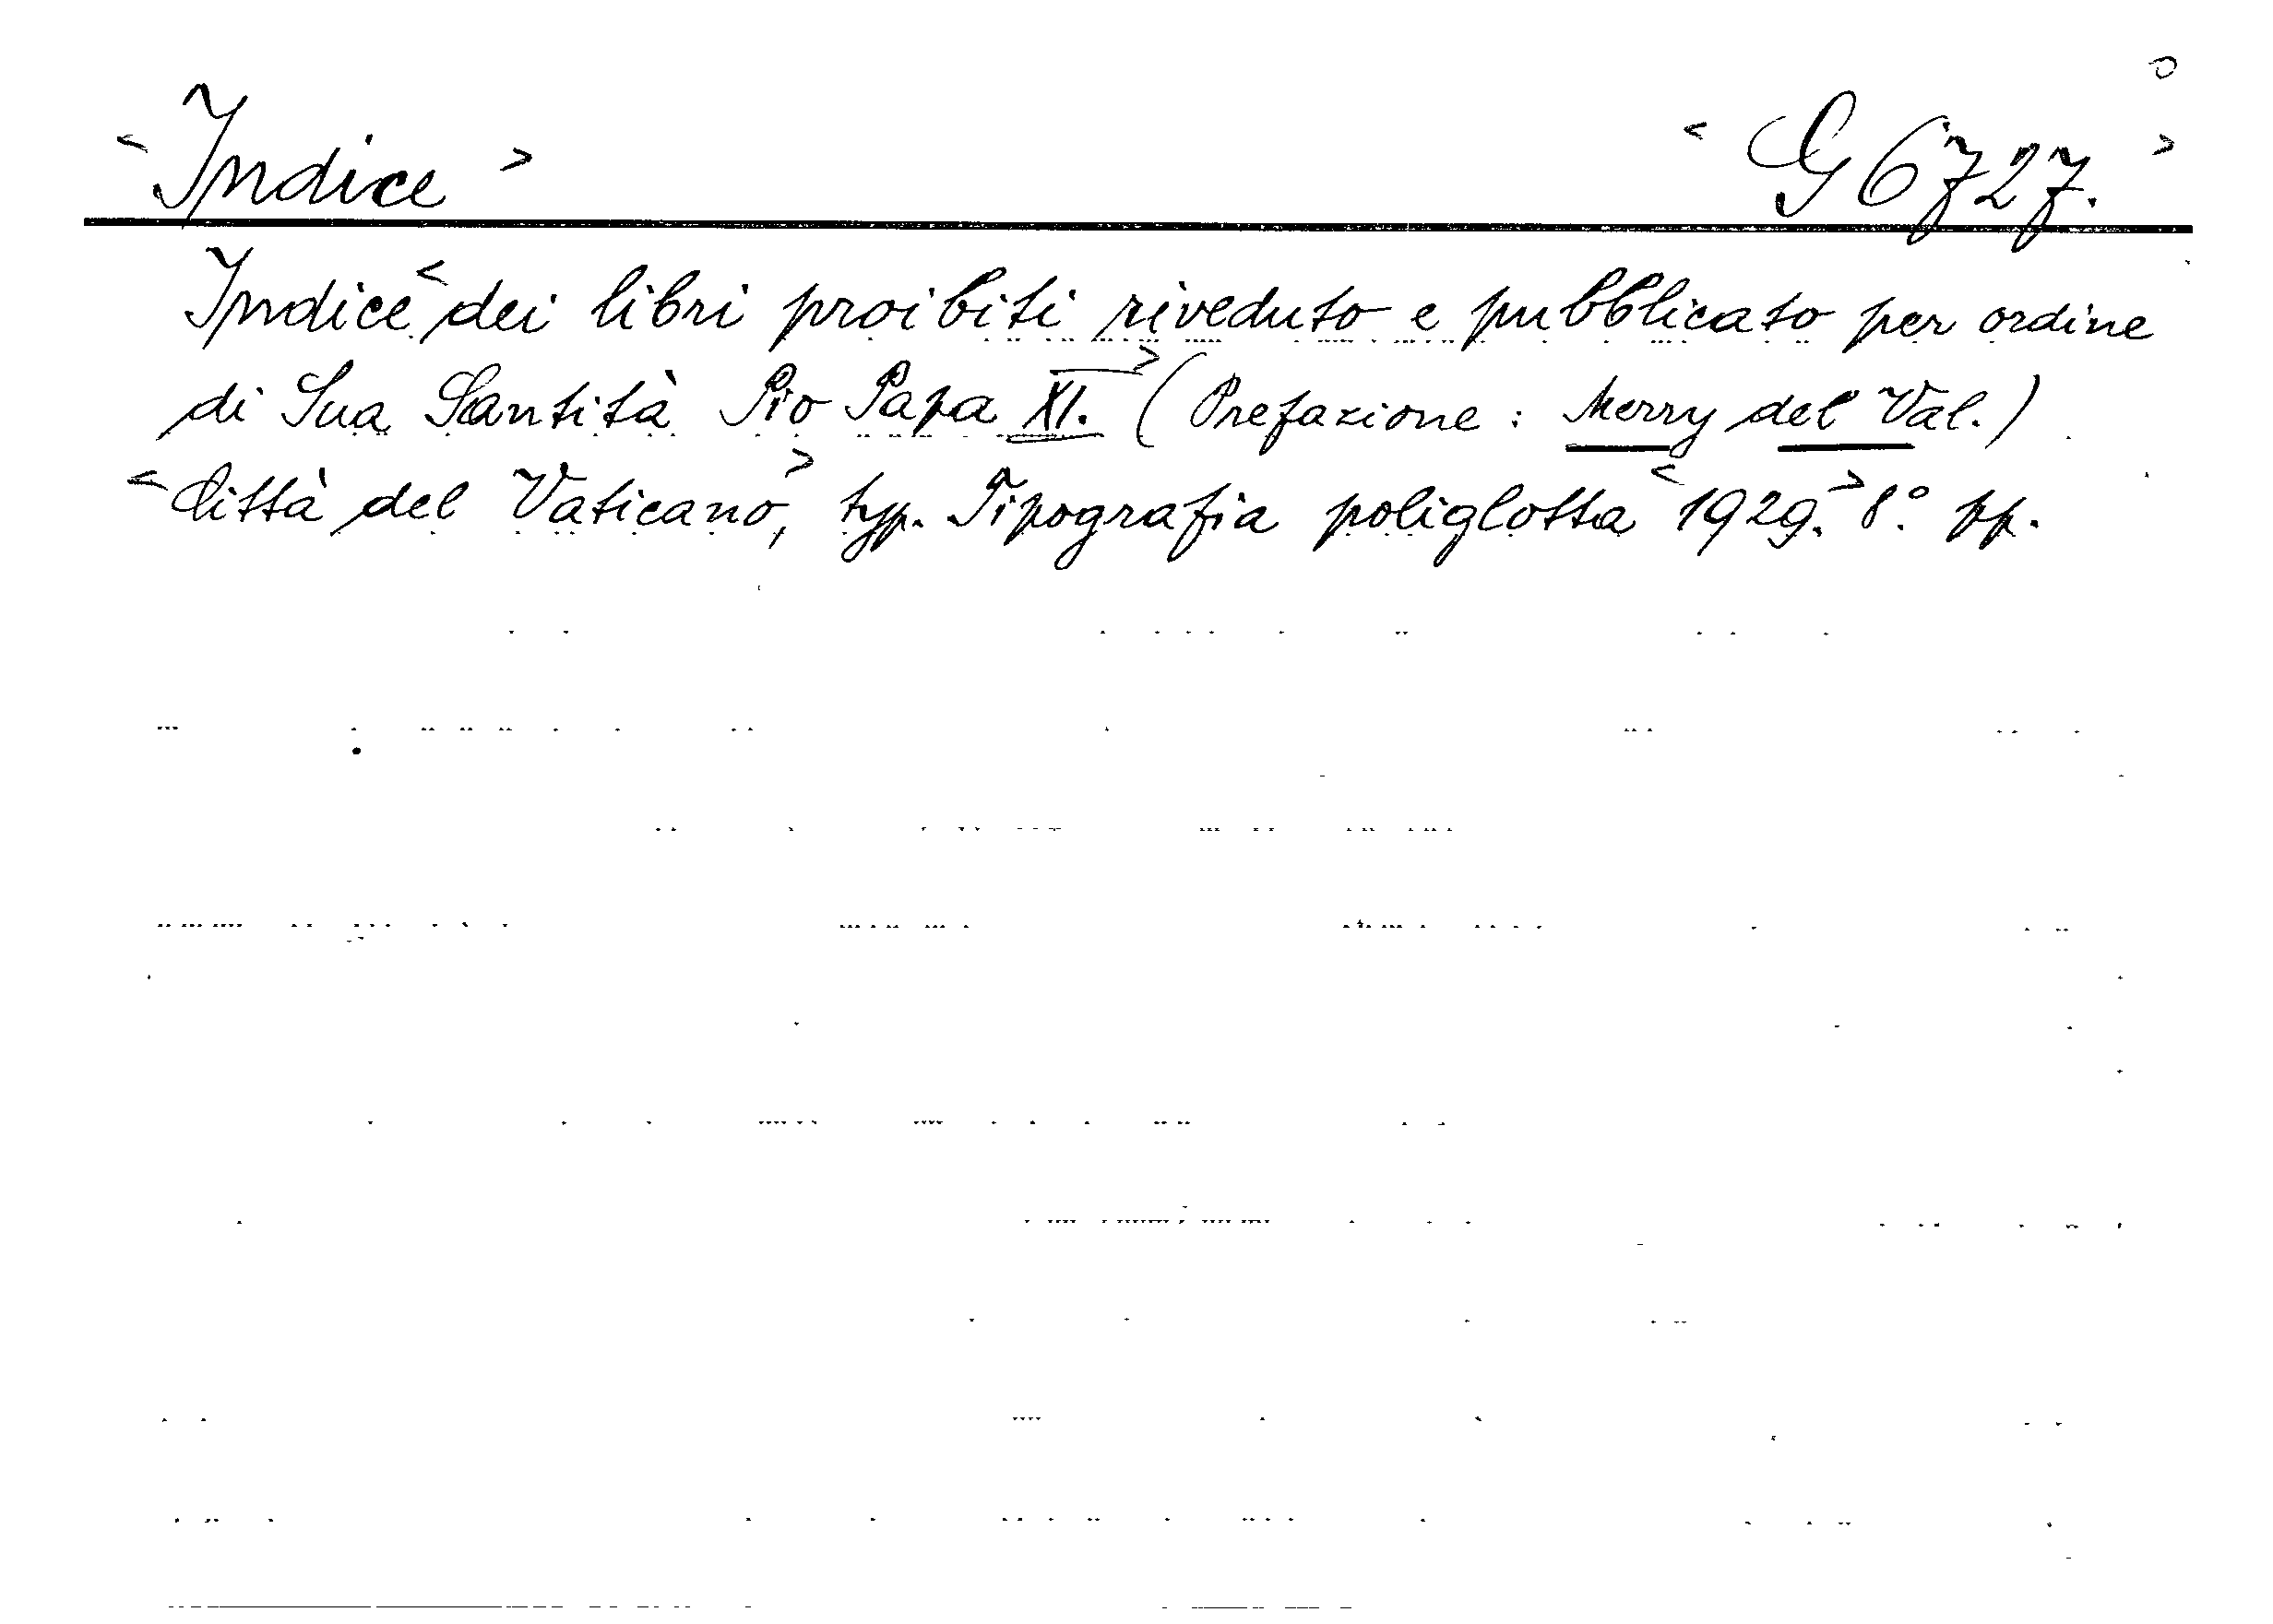 < Indice > < G 6727. >
Indice < dei libri proibiti riveduto e pubblicato per ordine
di Sua Santità Pio Papa XI. > (Prefazione : Merry del Val.)
< Città del Vaticano, > typ. Tipografia poliglotta < 1929. > 8° pp.